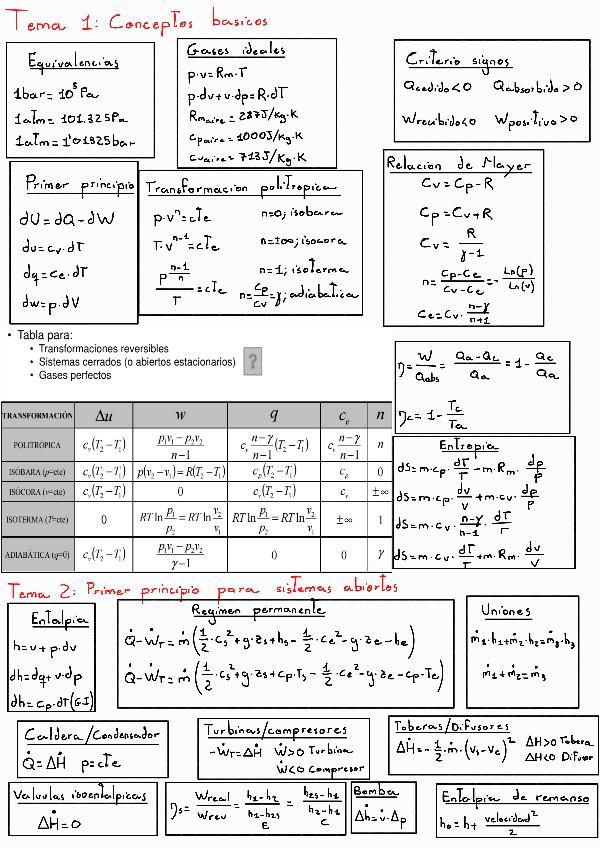 Tema 1: Conceptos basicos
Equivalencias
1bar = 10⁵Pa
1atm = 101.325Pa
1atm = 1'01325bar
Gases ideales
p·v = Rm·T
p·dv + v·dp = R·dT
Rm aire = 287J/kg·K
Cp aire = 1000J/kg·K
Cv aire = 713J/kg·K
Criterio signos
Qcedido < 0 Qabsorbido > 0
Wrecibido < 0 Wpositivo > 0
Primer principio
dU = dQ - dW
du = cv·dT
dq = ce·dT
dw = p·dV
Transformacion politropica
p·vⁿ = cTe n=0; isobara
T·vⁿ⁻¹ = cTe n=±∞; isocora
p^((n-1)/n)/T = cTe n=1; isoterma
n = Cp/Cv = γ; adiabatica
Relación de Mayer
Cv = Cp - R
Cp = Cv + R
Cv = R/(γ-1)
n = (Cp-Ce)/(Cv-Ce) = - Ln(p)/Ln(v)
Ce = Cv · (n-γ)/(n+1)
• Tabla para:
• Transformaciones reversibles
• Sistemas cerrados (o abiertos estacionarios)
• Gases perfectos
?
η = W/Qabs = (Qa-Qc)/Qa = 1 - Qc/Qa
ηc = 1 - Tc/Ta
TRANSFORMACIÓN Δu w q c_e n
POLITRÓPICA c_v(T₂-T₁) (p₁v₁-p₂v₂)/(n-1) c_v (n-γ)/(n-1) (T₂-T₁) c_v (n-γ)/(n-1) n
ISOBARA (p=cte) c_v(T₂-T₁) p(v₂-v₁)=R(T₂-T₁) c_p(T₂-T₁) c_p 0
ISÓCORA (v=cte) c_v(T₂-T₁) 0 c_v(T₂-T₁) c_v ±∞
ISOTERMA (T=cte) 0 RT ln p₁/p₂ = RT ln v₂/v₁ RT ln p₁/p₂ = RT ln v₂/v₁ ±∞ 1
ADIABÁTICA (q=0) c_v(T₂-T₁) (p₁v₁-p₂v₂)/(γ-1) 0 0 γ
Entropia
dS = m·cp·dT/T - m·Rm·dp/p
dS = m·cp·dv/v + m·cv·dp/p
dS = m·cv·(n-γ)/(n-1)·dT/T
dS = m·cv·dT/T + m·Rm·dv/v
Tema 2: Primer principio para sistemas abiertos
Entalpia
h = v + p·dv
dh = dq + v·dp
dh = cp·dT (G·I)
Regimen permanente
Q̇ - ẆT = ṁ(1/2·cs² + g·zs + hs - 1/2·ce² - g·ze - he)
Q̇ - ẆT = ṁ(1/2·cs² + g·zs + cp·Ts - 1/2·ce² - g·ze - cp·Te)
Uniones
ṁ₁·h₁ + ṁ₂·h₂ = ṁ₃·h₃
ṁ₁ + ṁ₂ = ṁ₃
Caldera/Condensador
Q̇ = ΔḢ p = cte
Turbinas/compresores
-ẆT = ΔḢ Ẇ>0 Turbina
Ẇ<0 Compresor
Toberas/Difusores
ΔḢ = -1/2·ṁ·(vs-ve)² ΔH>0 Tobera
ΔH<0 Difusor
Valvulas isoentalpicas
ΔḢ = 0
ηs = Wreal/Wrev = (h₁-h₂)/(h₁-h₂s) = (h₂s-h₁)/(h₂-h₁)
E C
Bomba
Δḣ = v̇·Δp
Entalpia de remanso
h₀ = h + velocidad²/2